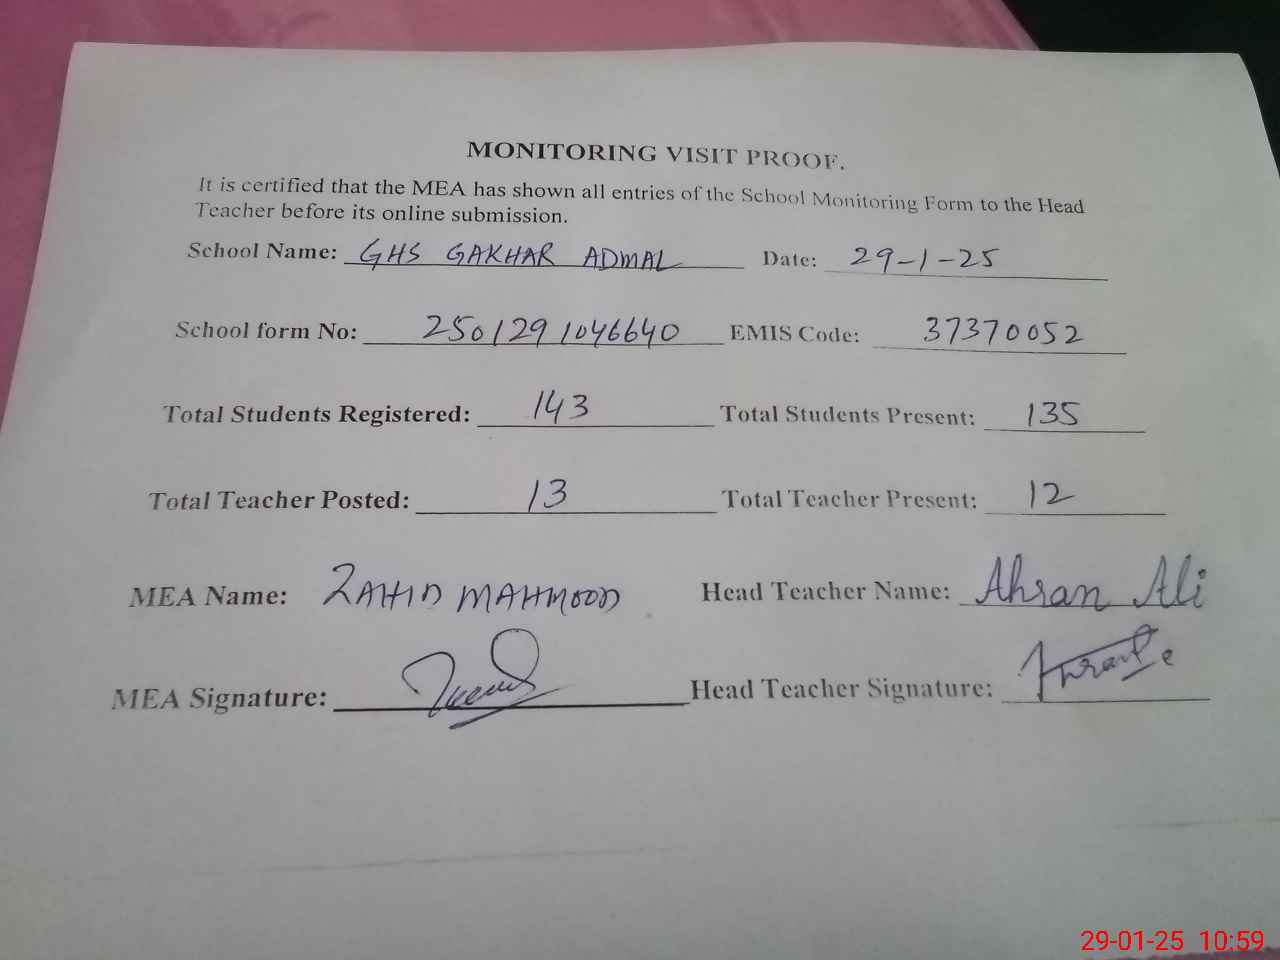 MONITORING VISIT PROOF.
It is certified that the MEA has shown all entries of the School Monitoring Form to the Head
Teacher before its online submission.
School Name: GHS GAKHAR ADMAL Date: 29-1-25
School form No: 2501291046640 EMIS Code: 37370052
Total Students Registered: 143 Total Students Present: 135
Total Teacher Posted: 13 Total Teacher Present: 12
MEA Name: ZAHID MAHMOOD Head Teacher Name: Ahsan Ali
MEA Signature: Head Teacher Signature:
29-01-25 10:59